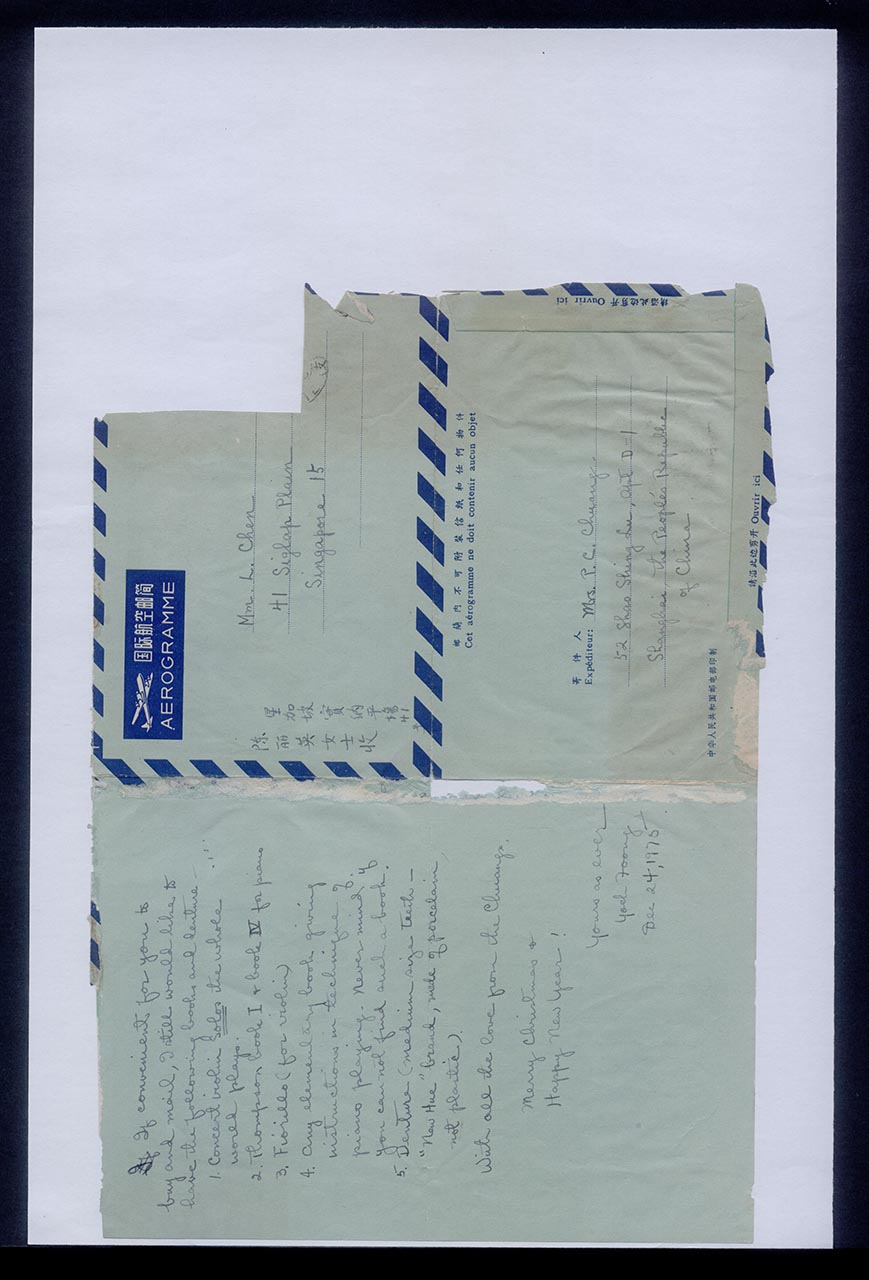 国际航空邮简
AEROGRAMME
Mme. L. Chen
41 Siglap Plain
Singapore 15
里加坡實納平場41
陈丽英女士收
邮简内不可附装信纸和任何物件
Cet aérogramme ne doit contenir aucun objet
寄件人
Expéditeur: Mrs. P. C. Chuang.
52 Shao Shing Lu, Apt D-1
Shanghai the People's Republic
of China
中华人民共和国邮电部印制
请沿此边剪开 Ouvrir ici
请沿此边剪开 Ouvrir ici
If convenient for you to
buy and mail, I still would like to
have the following books and denture -
1. Concert violin Solos the whole
world plays.
2. Thompson book I & book IV for piano
3. Fiorillo (for violin)
4. Any elementary book giving
instructions in technique of
piano playing. Never mind if
you can not find such a book.
5. Denture (medium size teeth -
"New Hue" brand, made of porcelain,
not plastic).
With all the love from the Chuangs.
Merry Christmas &
Happy New Year!
Yours as ever
Yoch Foong
Dec 24, 1975